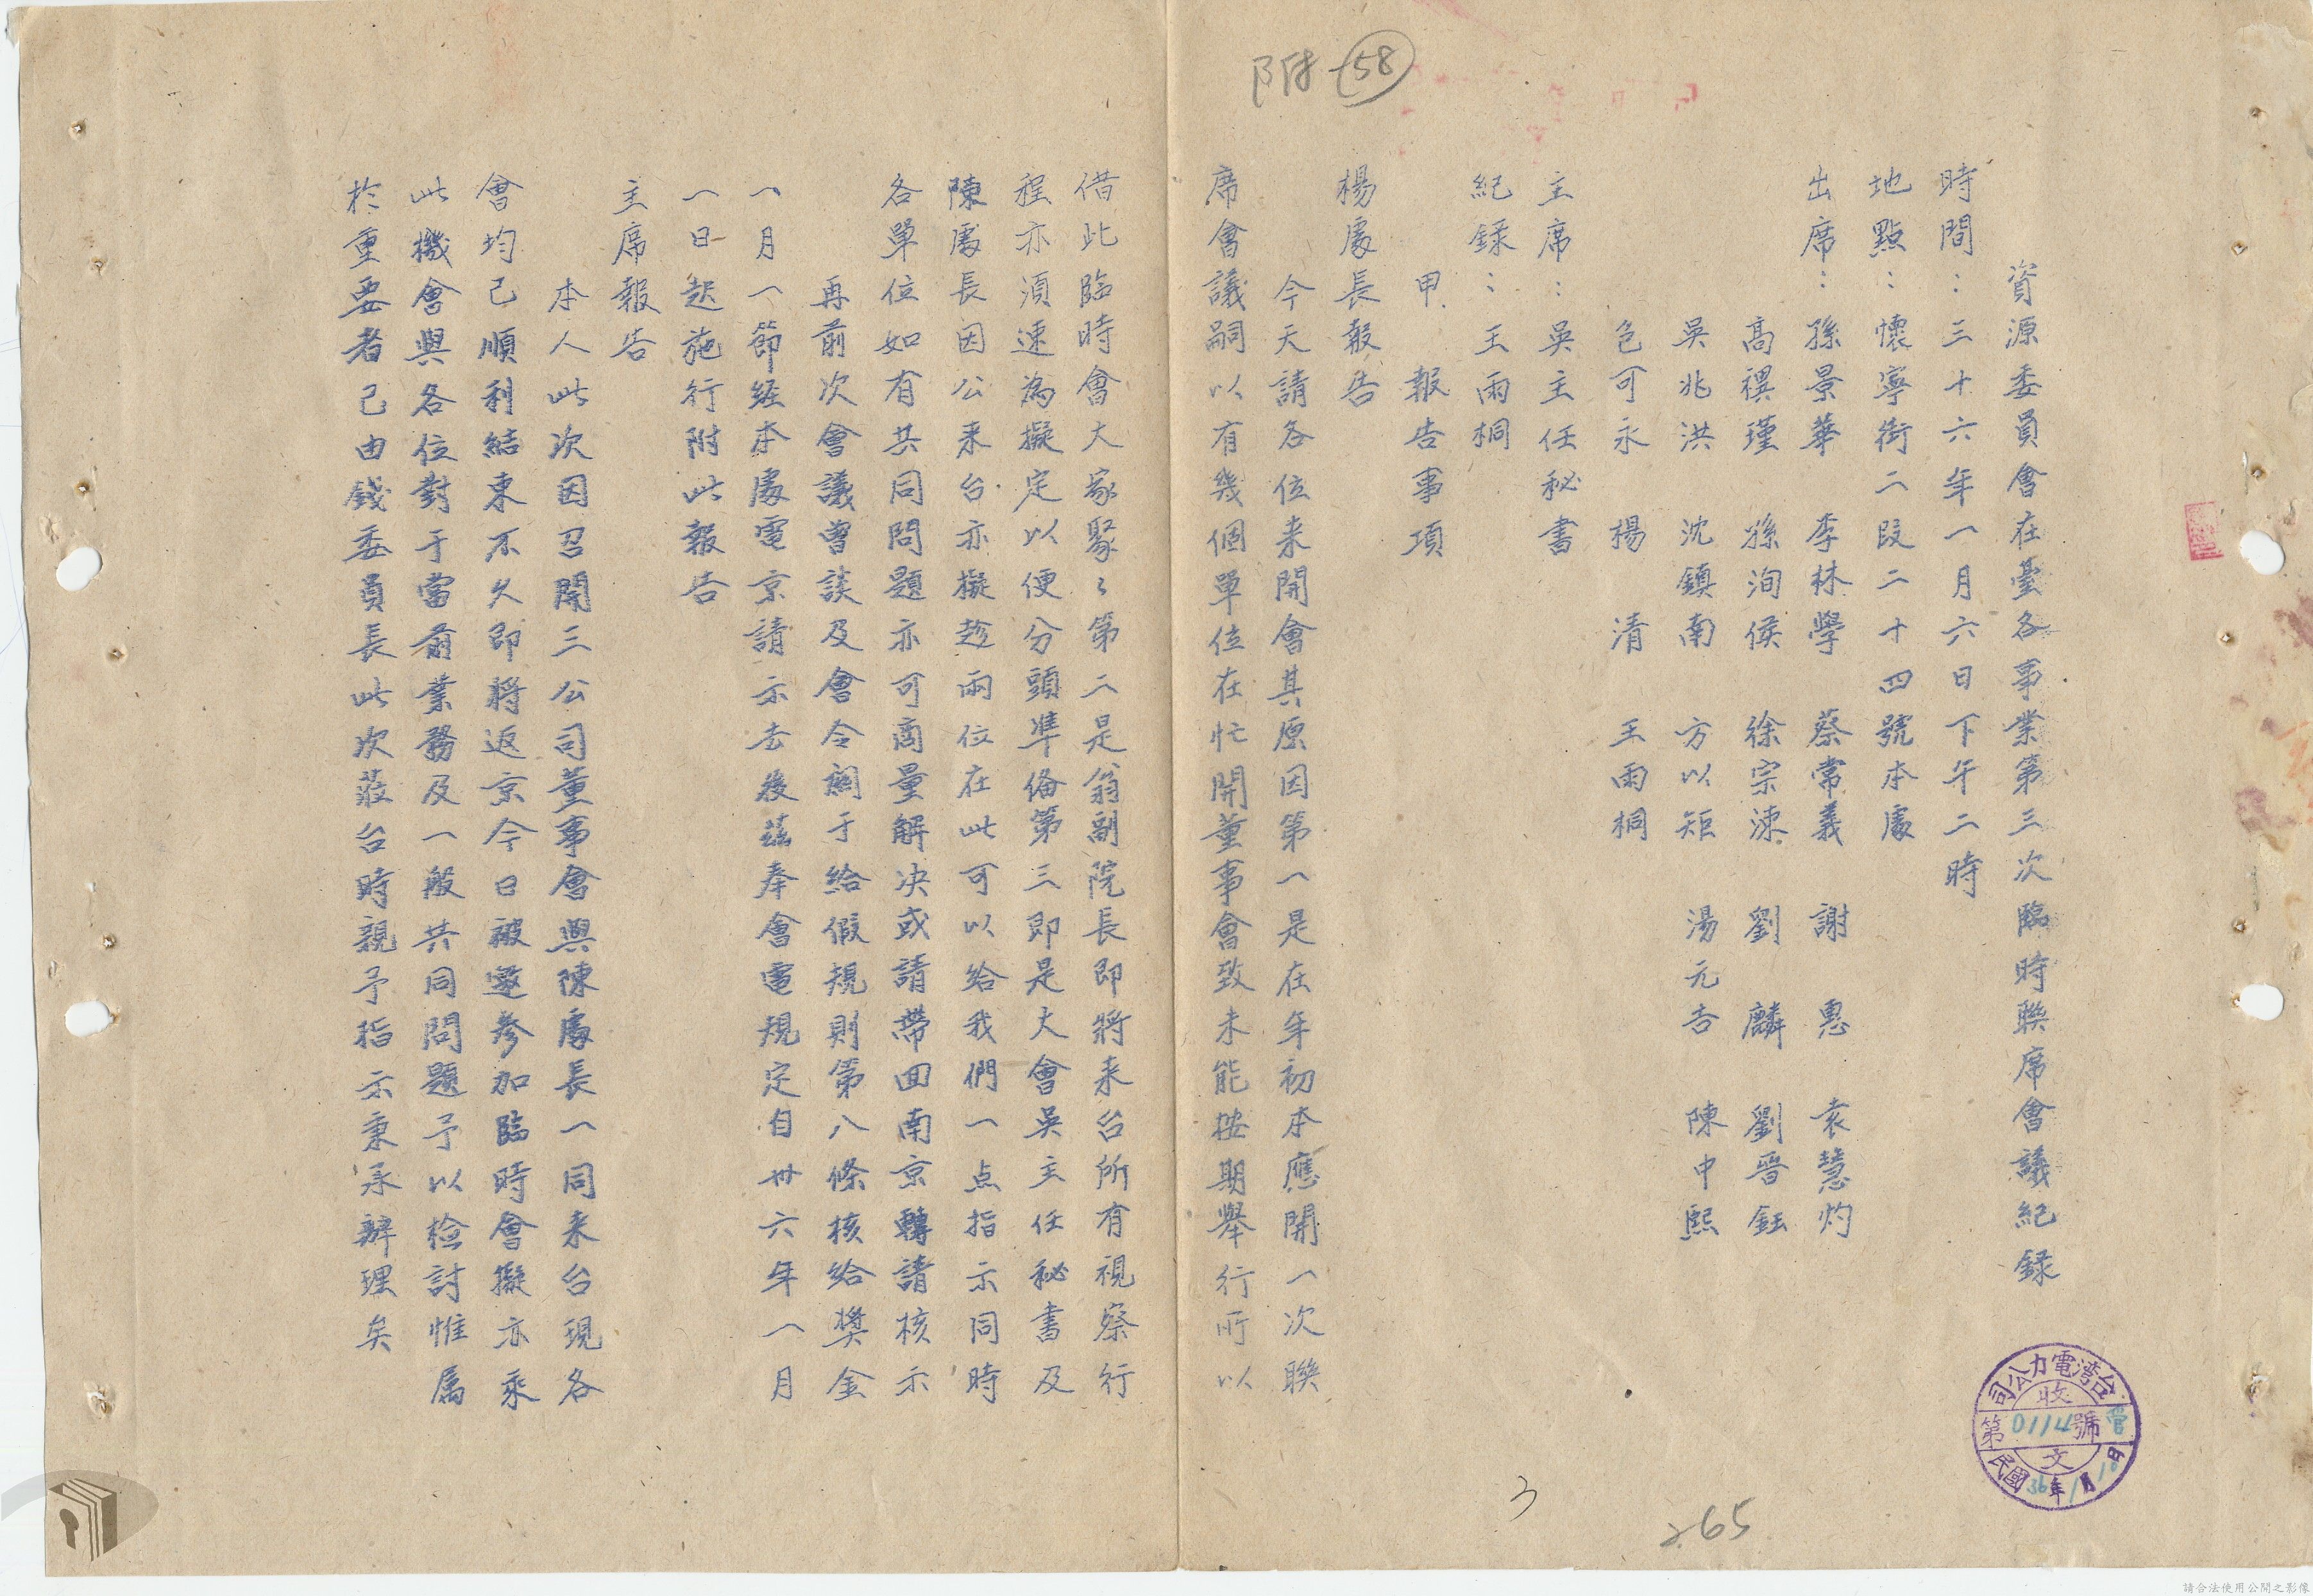 附 58
資源委員會在臺各事業第三次臨時聯席會議紀錄
時間：三十六年一月六日下午二時
地點：懷寧街二段二十四號本處
出席：孫景華 李林學 蔡常義 謝惠 袁慧灼
高禩瑾 孫洵侯 徐宗涑 劉麟 劉晋鈺
吳兆洪 沈鎮南 方以矩 湯元吉 陳中熙
包可永 楊清 王雨桐
主席：吳主任秘書
紀錄：王雨桐
甲 報告事項
楊處長報告
今天請各位来開會其原因第一是在年初本應開一次聯
席會議嗣以有幾個單位在忙開董事會致未能按期舉行所以
借此臨時會大家聚々第二是翁副院長即將来台所有視察行
程亦須速為擬定以便分頭準俻第三即是大會吳主任秘書及
陳處長因公来台亦擬趁兩位在此可以給我們一点指示同時
各單位如有共同問題亦可商量解决或請帶回南京轉請核示
再前次會議曾談及會令關于給假規則第八條核給獎金
一月一節經本處電京請示去後茲奉會電規定自卅六年一月
一日起施行附此報告
主席報告
本人此次因召開三公司董事會與陳處長一同来台現各
會均已順利結束不久即將返京今日被邀參加臨時會擬亦乘
此機會與各位對于當前業務及一般共同問題予以檢討惟属
於重要者已由錢委員長此次蒞台時親予指示秉承辦理矣
台灣電力公司
收
第0114號
文
民國36年1月10日
3
265
請合法使用公開之影像